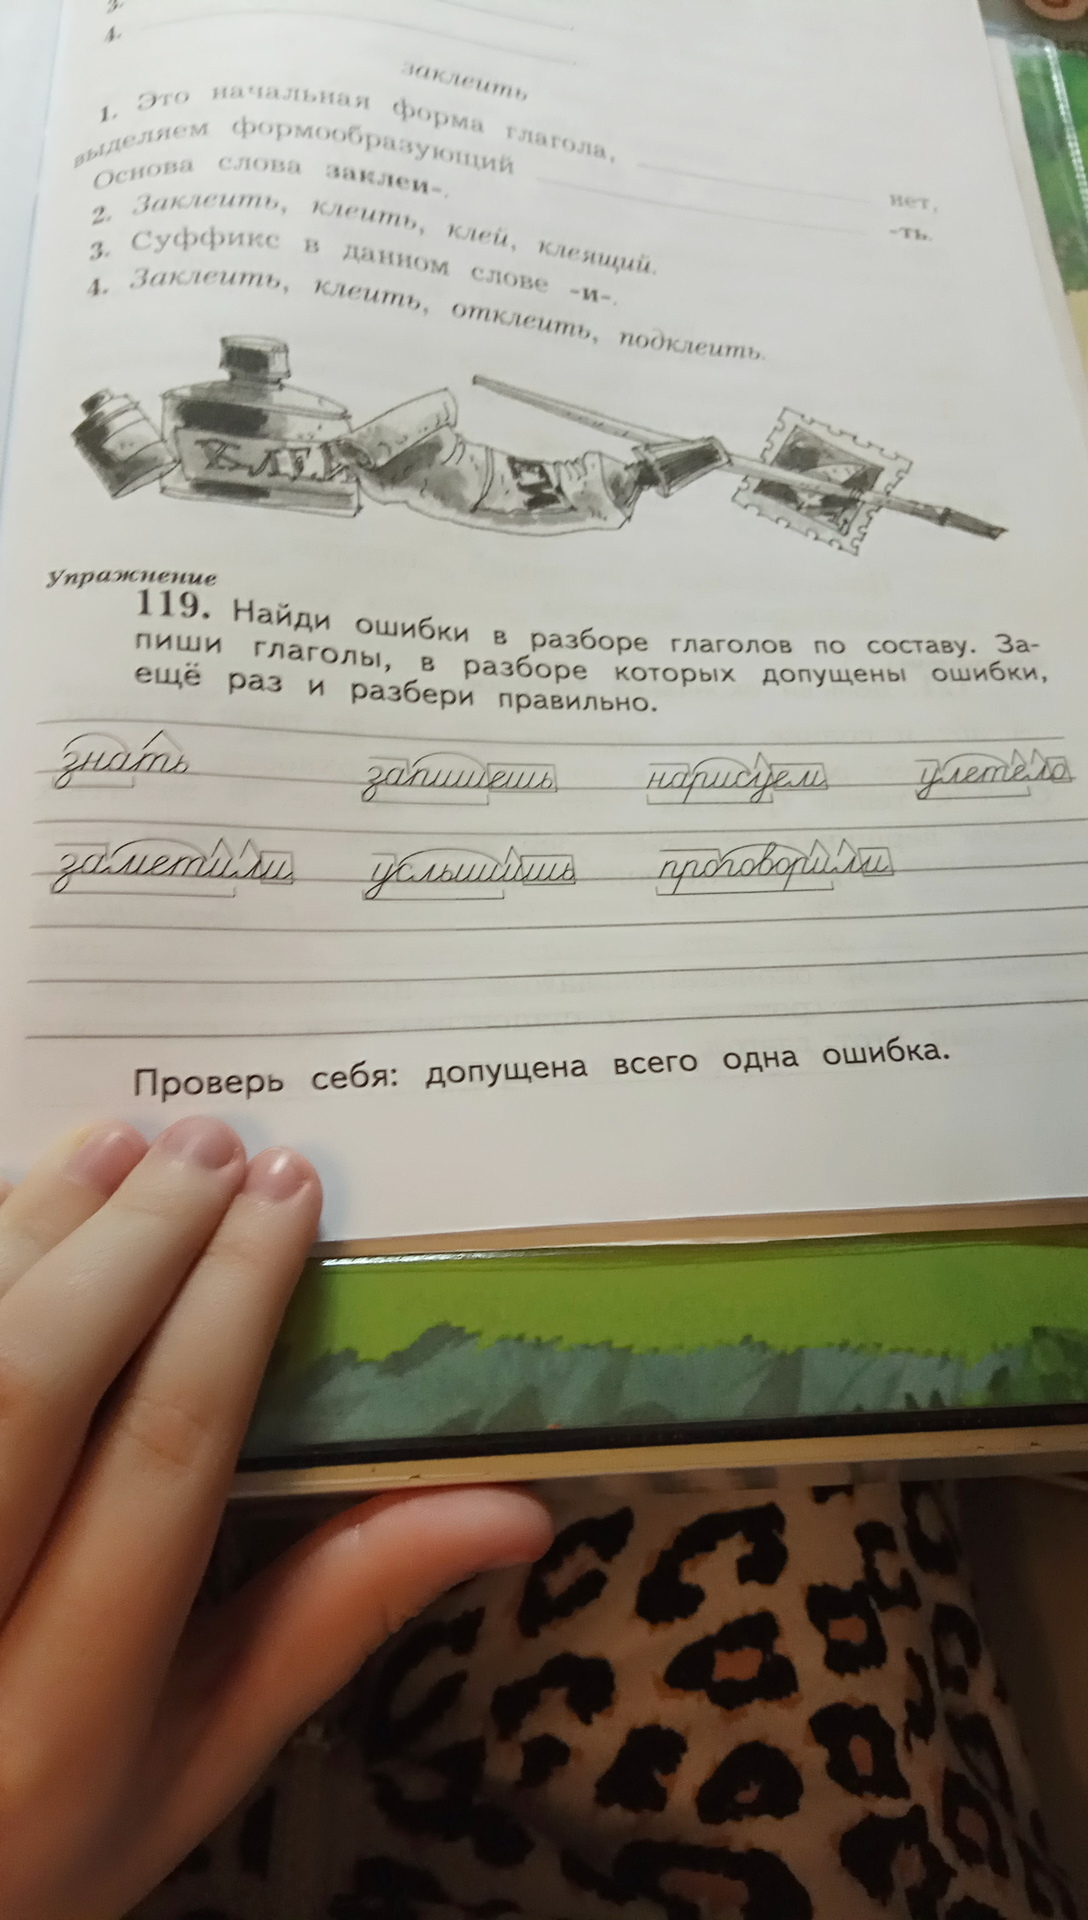 3.
4.
заклеить
1. Это начальная форма глагола, нет,
выделяем формообразующий -ть.
Основа слова заклеи-.
2. Заклеить, клеить, клей, клеящий.
3. Суффикс в данном слове -и-.
4. Заклеить, клеить, отклеить, подклеить.
КЛЕЙ
Упражнение
119. Найди ошибки в разборе глаголов по составу. За-
пиши глаголы, в разборе которых допущены ошибки,
ещё раз и разбери правильно.
знать запишешь нарисуем улетело
заметили услышишь проговорили
Проверь себя: допущена всего одна ошибка.